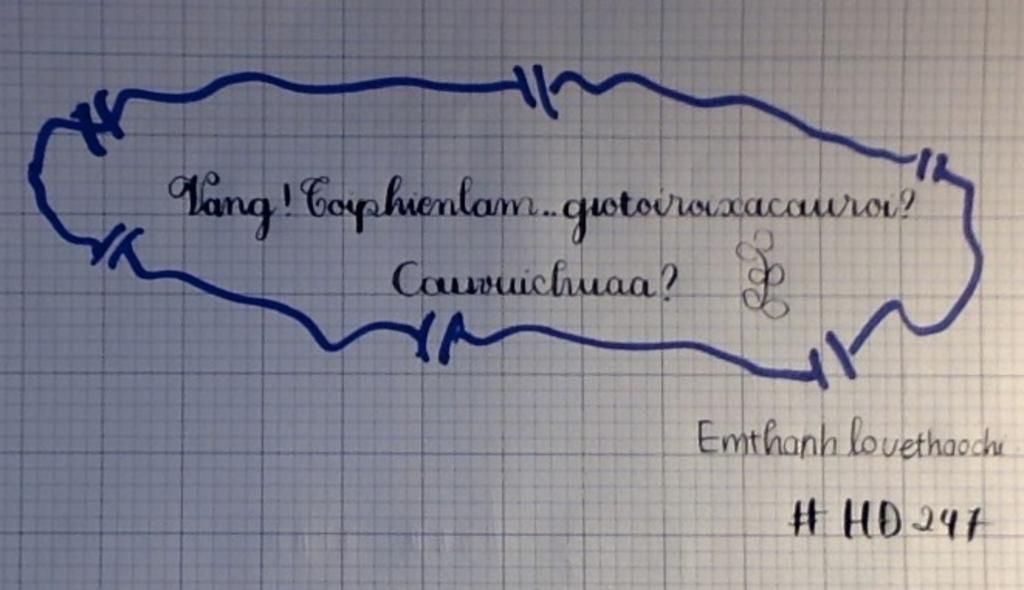 Vang! Toiphienlam.. giotoiroixacauroi?
Cauvuichuaa?
Emthanh lovethaochi
# HD 247